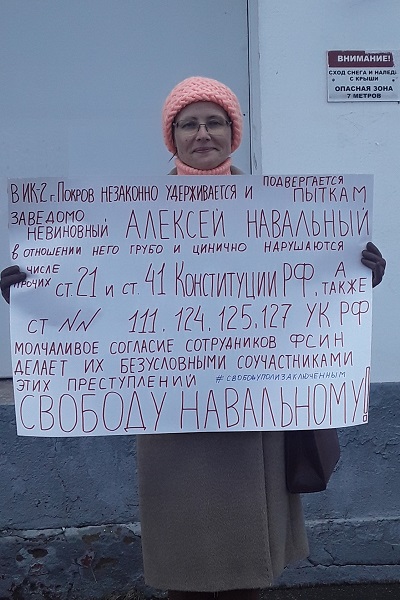 ВНИМАНИЕ!
СХОД СНЕГА И НАЛЕДИ
С КРЫШИ
ОПАСНАЯ ЗОНА
7 МЕТРОВ
В ИК-2 г. ПОКРОВ НЕЗАКОННО УДЕРЖИВАЕТСЯ И ПОДВЕРГАЕТСЯ ПЫТКАМ
ЗАВЕДОМО НЕВИНОВНЫЙ АЛЕКСЕЙ НАВАЛЬНЫЙ
В ОТНОШЕНИИ НЕГО ГРУБО И ЦИНИЧНО НАРУШАЮТСЯ
ЧИСЛЕ ПРОЧИХ СТ. 21 И СТ. 41 КОНСТИТУЦИИ РФ, А ТАКЖЕ
СТ NN 111, 124, 125, 127 УК РФ
МОЛЧАЛИВОЕ СОГЛАСИЕ СОТРУДНИКОВ ФСИН
ДЕЛАЕТ ИХ БЕЗУСЛОВНЫМИ СОУЧАСТНИКАМИ
ЭТИХ ПРЕСТУПЛЕНИЙ #СВОБОДУПОЛИТЗАКЛЮЧЕННЫМ
СВОБОДУ НАВАЛЬНОМУ!